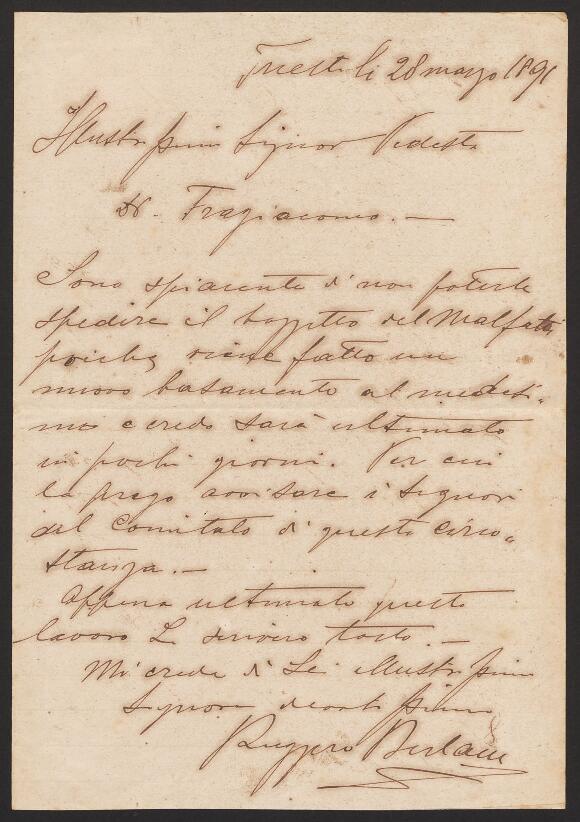 Trieste li 28 marzo 1891
Illustrissimo Signor Podestà
Dr. Fragiacomo. —
Sono spiacente di non poterle
spedire il bozzetto del Malfatti,
poiche viene fatto un
nuovo basamento al medesi-
mo e credo sarà ultimato
in pochi giorni. Per cui
la prego avvisare i Signori
del Comitato di questa circo-
stanza. —
Appena ultimato questo
lavoro Le scriverò tosto. —
Mi creda di Lei illustrissimo
Signore devotissimo
Ruggero Berlam